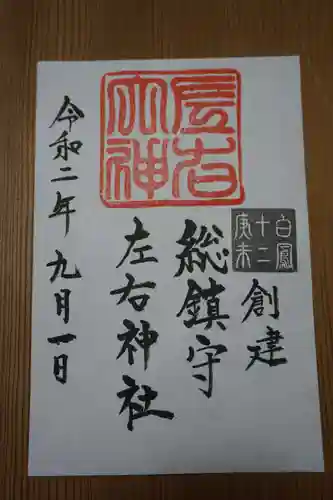 白鳳
十二
庚未
創建
総鎮守
左右神社
左右
大神
令和二年九月一日